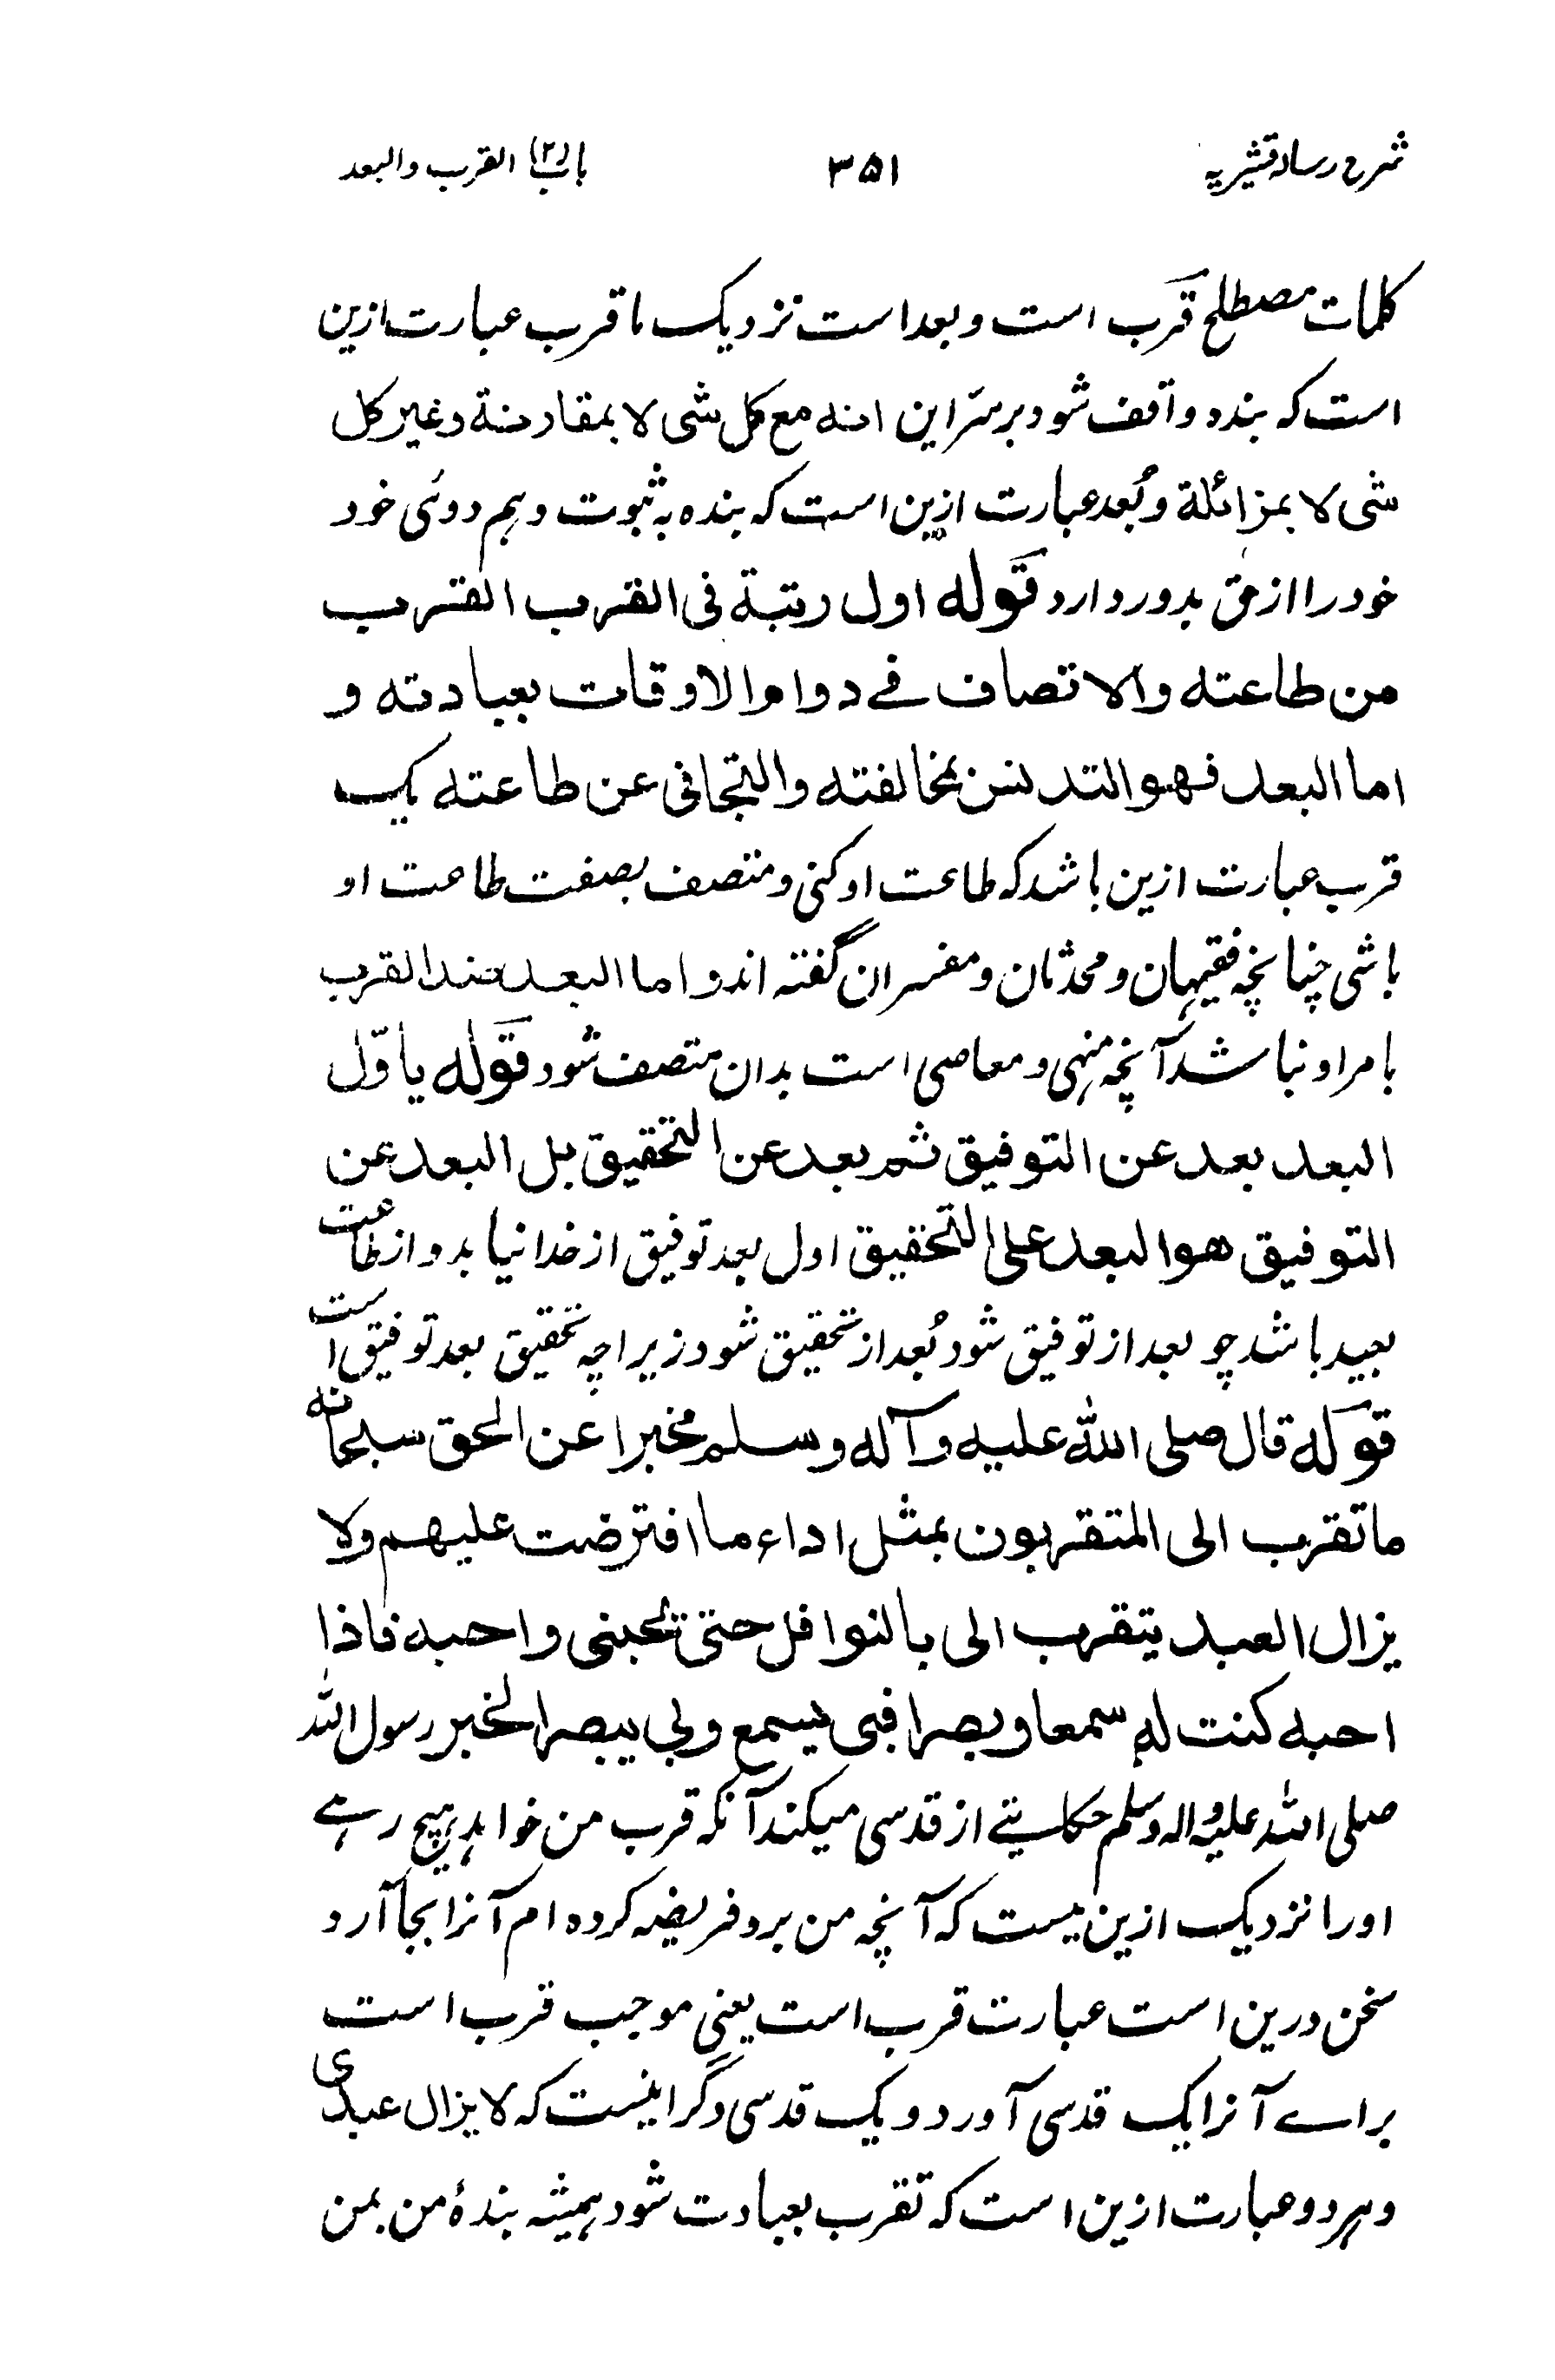 شرح رسالہ قشیریہ ۳۵۱ باب (۲) القرب والبعد
کلمات مصطلح قرب است و بعد است نزدیک ما قرب عبارت ازین
است کہ بندہ واقف شود بر سرّ این انه مع کل شی لا بمقارنة و غیر کل
شی لا بمزائلة و بُعد عبارت ازین است کہ بندہ بہ ثبوت وہم دوئی خود
خود را از حق بدور دارد قوله اول رتبة فی القرب القرب
من طاعته والاتصاف فے دوام الاوقات بعبادته و
اما البعد فهو التدنس بمخالفته والتجافی عن طاعته یک
قرب عبارت ازین باشد کہ طاعت او کنی و متصف بصفت طاعت او
باشی چنانچہ فقیہان و محدثان و مفسران گفتہ اند و اما البعد ضد القرب
بامر او نباشد آنچہ منہی و معاصی است بدان متصف شود قوله یا وّل
البعد بعد عن التوفیق ثم بعد عن التحقیق بل البعد عن
التوفیق هو البعد علی التحقیق اول بعد توفیق از خدا نیابد و از طاعت
بعید باشد چو بعد از توفیق شود بُعد از تحقیق شود زیراچہ تحقیق بعد توفیق است
قوله قال صلی الله علیه وآله وسلم مخبرا عن الحق سبحانه
ما تقرب الی المتقربون بمثل اداء ما افترضت علیهم ولا
یزال العبد یتقرب الی بالنوافل حتی یحبنی واحبه فاذا
احبه کنت له سمعا وبصرا فبی یسمع وبی یبصر الخبر رسول اللہ
صلی اللہ علیہ والہ وسلم حکایتے از قدسی میکند آنکہ قرب من خواہد ہیچ رہے
اورا نزدیک ازین نیست کہ آنچہ من برو فریضہ کردہ ام آنرا بجا آرد
سخن درین است عبارت قرب است یعنی موجب قرب است
براے آنرا یک قدسی آورد و یک قدسی دگر اینست کہ لا یزال عبدی
و ہردو عبارت ازین است کہ تقرب بعبادت شود ہمیشہ بندۂ من بمن